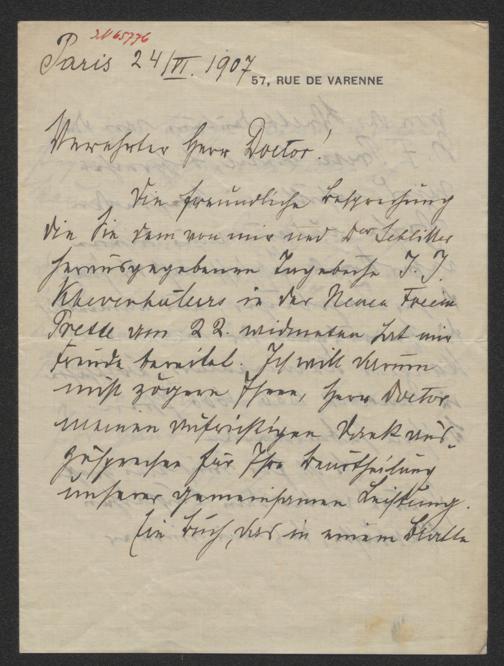 ZN 65776
Paris 24/VI. 1907
57, RUE DE VARENNE
Verehrter Herr Doctor!
Die freundliche Besprechung
die Sie dem von mir und Dr Schlitter
herausgegebenen Tagebuche J. J.
Khevenhüllers in der Neuen Freien
Presse vom 22. widmeten hat mir
Freude bereitet. Ich will darum
nicht zögern Ihnen, Herr Doctor
meinen aufrichtigen Dank aus-
zusprechen für Ihre Beurtheilung
unserer gemeinsamen Leistung.
Ein Buch, das in einem Blatte